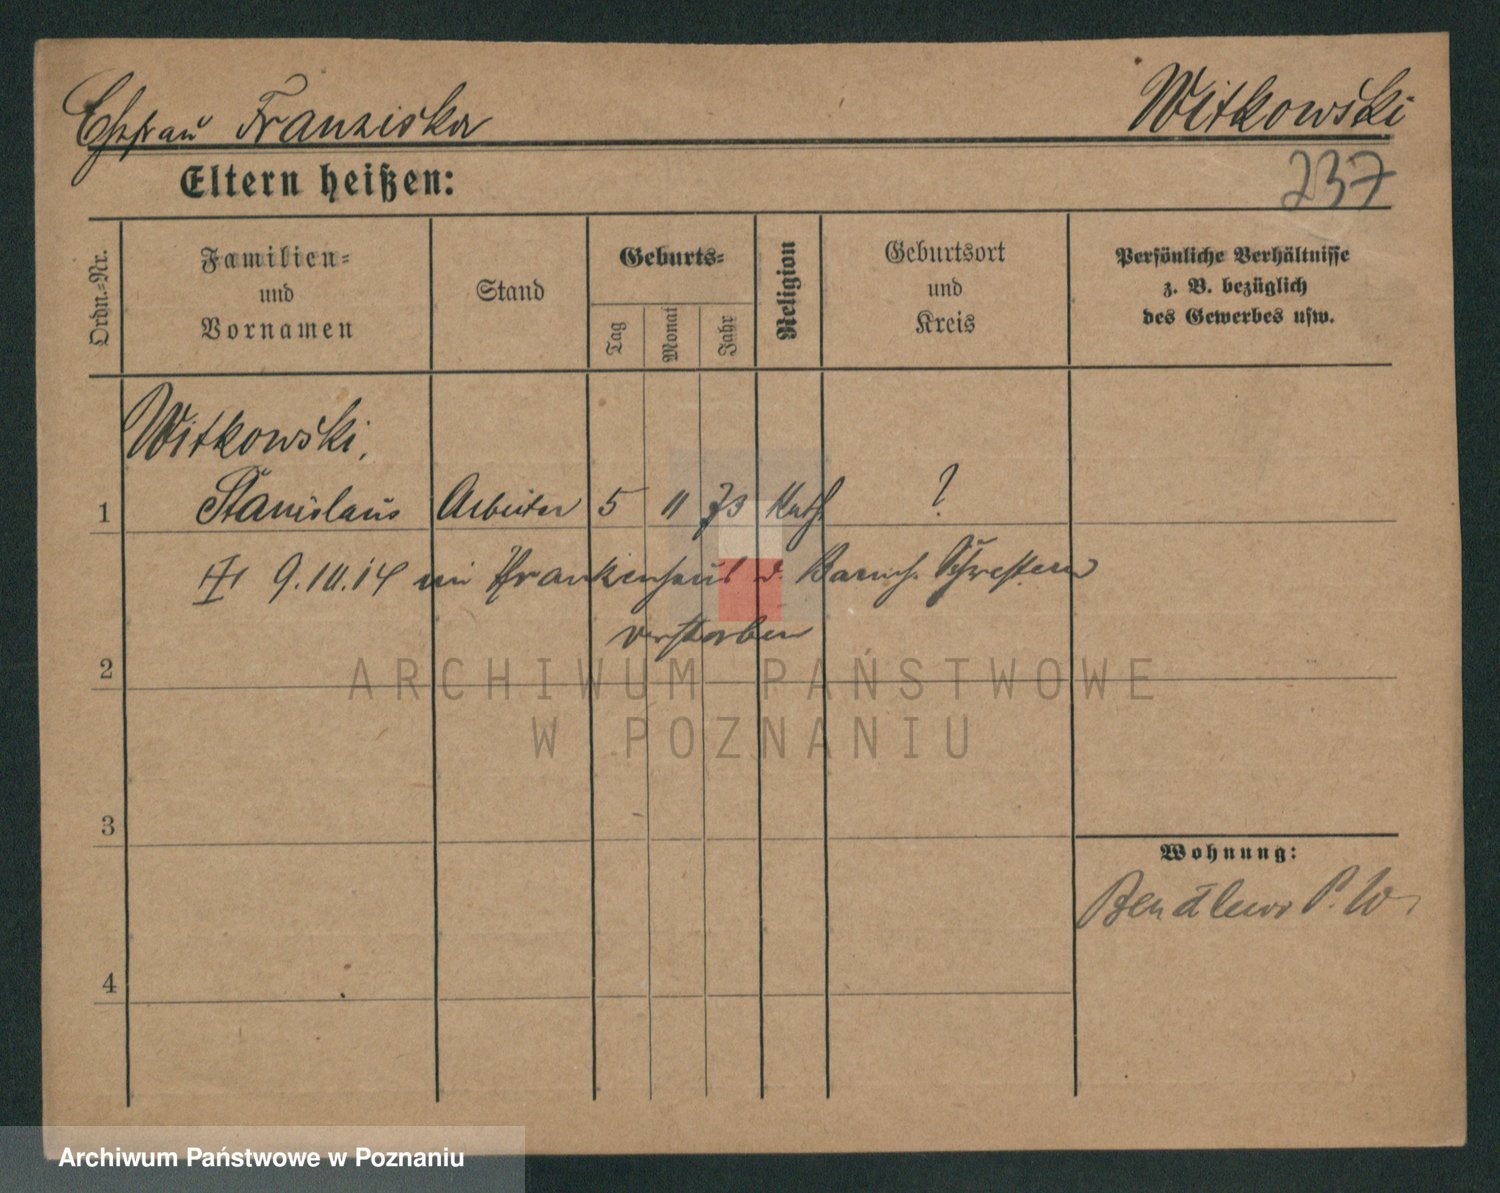 Ehefrau Franziska Witkowski
237
Eltern heißen:
Ordn.-Nr.
Familien-
und
Vornamen
Stand
Geburts-
Tag
Monat
Jahr
Religion
Geburtsort
und
Kreis
Persönliche Verhältnisse
z. B. bezüglich
des Gewerbes usw.
Witkowski,
1 Stanislaus Arbeiter 5 11 73 Kath ?
9.10.14 im Krankenhaus d. Barmh. Schwestern
verstorben
2
3
4
Wohnung:
Bendlewo P. W.
ARCHIWUM PAŃSTWOWE
W POZNANIU
Archiwum Państwowe w Poznaniu